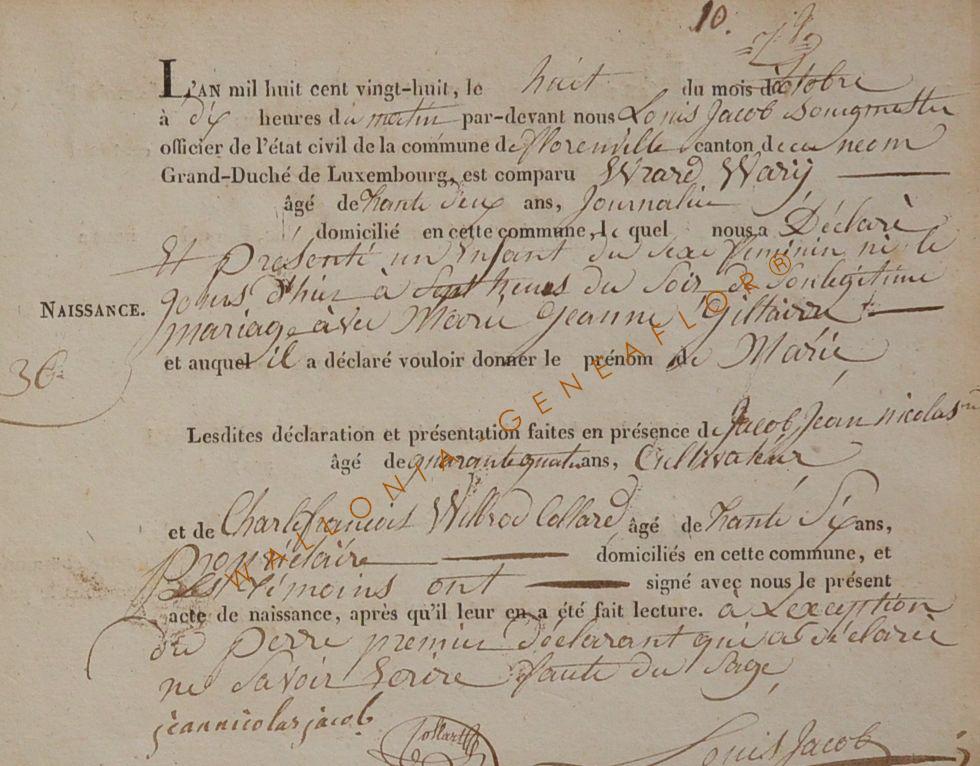 10.
L'AN mil huit cent vingt-huit, le huit du mois d'octobre
à dix heures du matin par-devant nous Louis Jacob Bourgmestre
officier de l'état civil de la commune de florenville canton de
Grand-Duché de Luxembourg, est comparu Wrard Wary
âgé de trante deux ans, Journalier
domicilié en cette commune, le quel nous a Déclaré
Et présenté un Enfant du sexe feminin né le
jours d'hier à Sept heures du Soir de Son legitime
NAISSANCE.
mariage avec Marie Jeanne Giltaire
et auquel il a déclaré vouloir donner le prénom de Marie
36
Lesdites déclaration et présentation faites en présence de Jacob Jean nicolas
âgé de quarante quatre ans, Cultivateur
et de Charle francois Wilbrod Collard âgé de trante Six ans,
Propriétaire domiciliés en cette commune, et
Les témoins ont signé avec nous le présent
acte de naissance, après qu'il leur en a été fait lecture. à L'exception
du perre premier déclarant qui a déclaré
ne Savoir Ecrire faute du Sage
jean nicolas jacob
Collard
Louis Jacob
WALLONIA - GENEAFLOR®